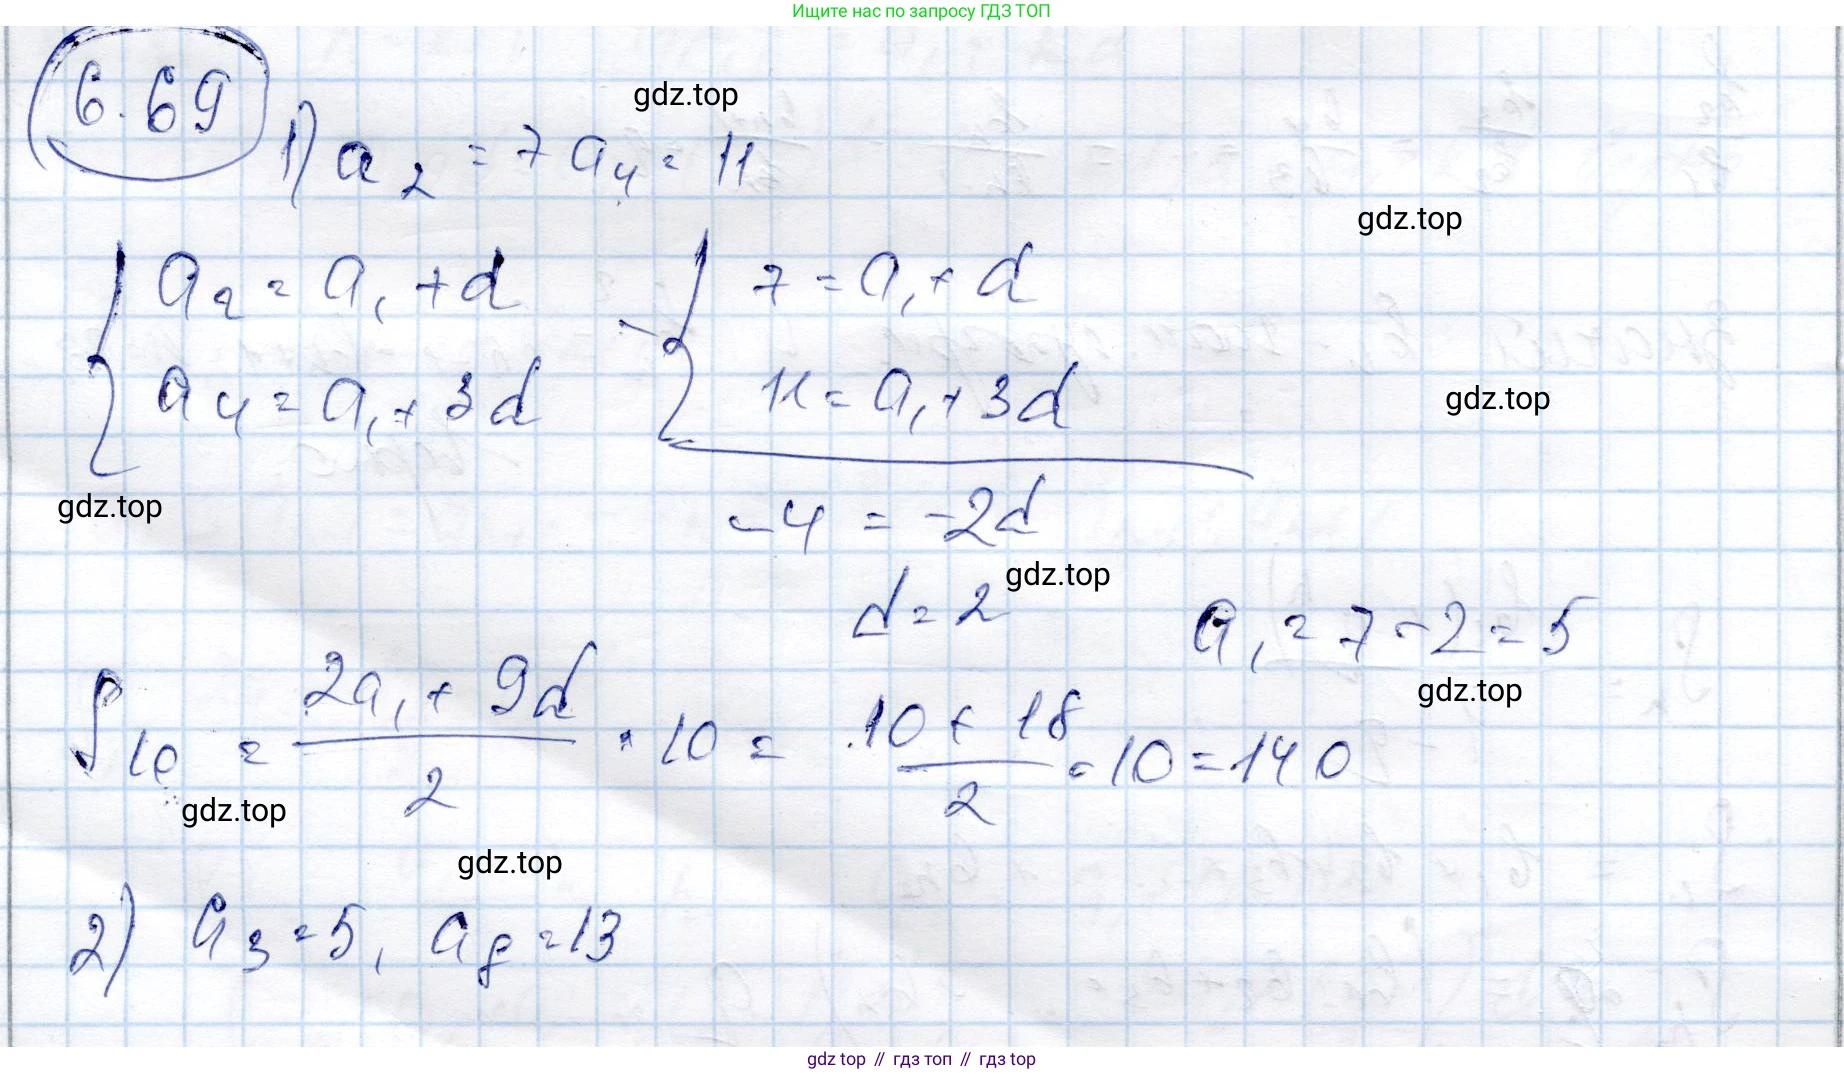 Ищите нас по запросу ГДЗ ТОП
6.69
gdz.top
1) a₂ = 7 a₄ = 11
gdz.top
{ a₂ = a₁ + d
a₄ = a₁ + 3d
- { 7 = a₁ + d
11 = a₁ + 3d
gdz.top
gdz.top
-4 = -2d
gdz.top
d = 2
a₁ = 7 - 2 = 5
gdz.top
S₁₀ = (2a₁ + 9d)/2 · 10 = (10 + 18)/2 · 10 = 140
gdz.top
gdz.top
2) a₃ = 5, a₈ = 13
gdz top // гдз топ // гдз top